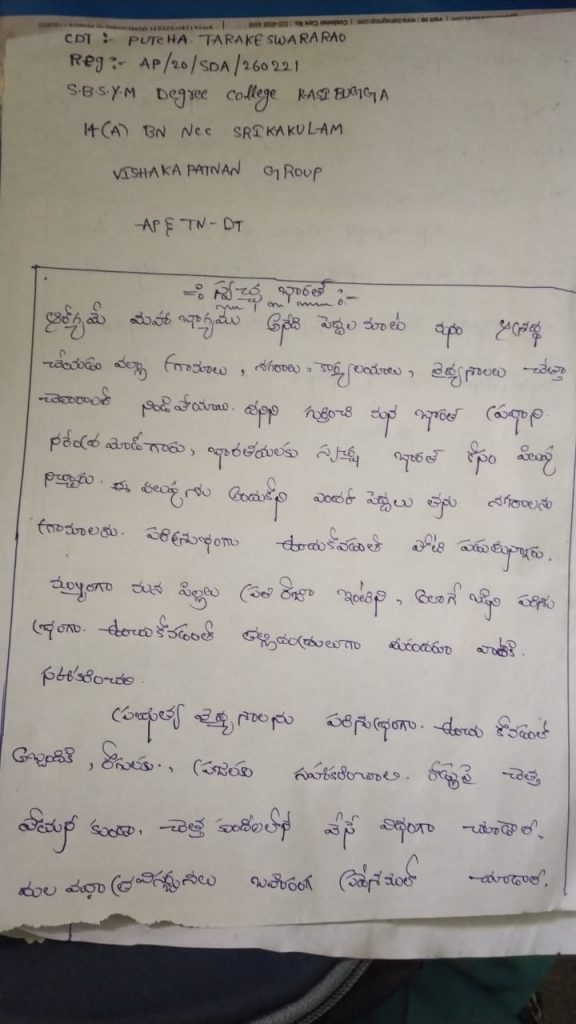 CDT :- PUTCHA. TARAKESWARARAO
Reg :- AP/20/SDA/260221
S.B.S.Y.M Degree College KASIBUGGA
14(A) BN Ncc SRIKAKULAM
VISHAKAPATNAN GROUP
AP & TN-DT
-: స్వచ్ఛ భారత్ :-
ఆరోగ్యమే మహా భాగ్యము అనేది పెద్దల మాట మనం అశ్రద్ధ
చేయడం వల్ల గ్రామాలు, నగరాలు, కార్యాలయాలు, వైద్యశాలలు చెత్తా
చెదారాలతో నిండిపోయాయి. దీనిని గుర్తించి మన భారత ప్రధాని
నరేంద్ర మోడీగారు, భారతీయులకు స్వచ్ఛ భారత్ కోసం పిలుపు
నిచ్చారు. ఈ పిలుపును అందుకొని ఎందరో పెద్దలు తమ నగరాలను
గ్రామాలను. పరిశుభ్రంగా ఉంచుకోవడంలో పోటీ పడుతున్నారు.
ముఖ్యంగా మన పిల్లలు ప్రతి రోజూ ఇంటిని, అలాగే బడిని పరిశు
భ్రంగా. ఉంచుకోవడంలో తల్లిదండ్రులుగా మనందరూ వారికి.
సహకరించాలి.
ప్రభుత్వ వైద్యశాలను పరిశుభ్రంగా. ఉంచు కోవడంలో
సిబ్బందికి, రోగులకు., ప్రజలకు సహకరించాలి. రోడ్లపై చెత్త
వేయనీ కుండా. చెత్త కుండీలలోనే వేసే విధంగా చూడాలి.
మల మూత్ర విసర్జనలు బహిరంగ ప్రదేశములో చూడాలి.